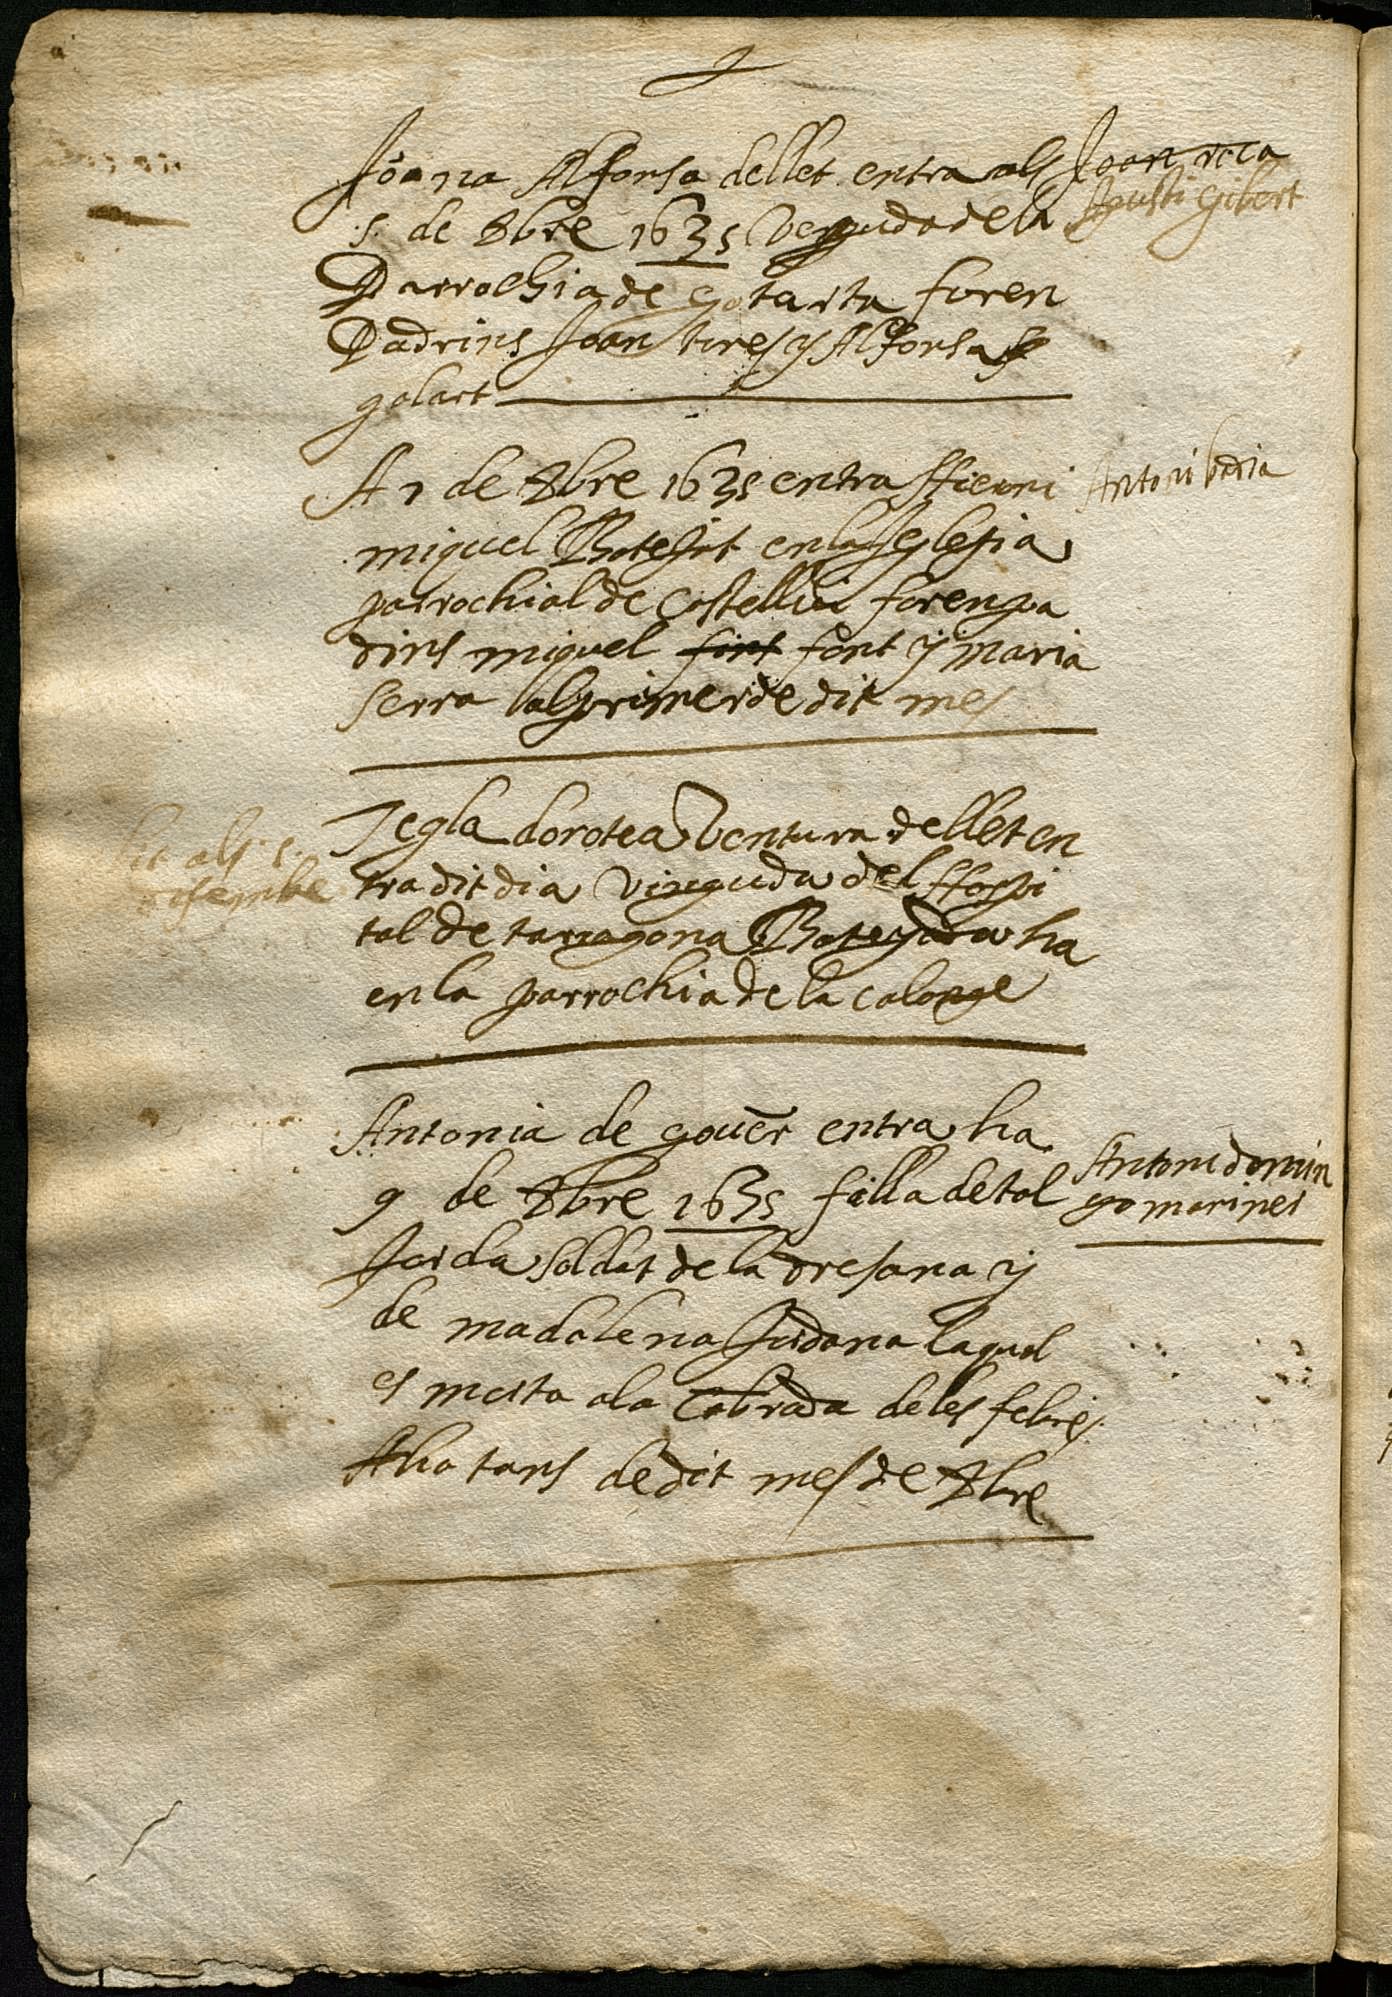 Joana Alfonsa dellet entra als
5 de xbre 1635 Venguda de la
Parrochia de foren
Padrins Joan tires y Alfonsa
golart
Joan roca
Agusti gibert
A 7 de xbre 1635 entra
miquel Batejat en la Iglesia
parrochial de Castellvi foren pa
drins miquel font font y maria
serra al primer de dit mes
Antoni badia
Tegla dorotea Ventura dellet en
tra dit dia vinguda del Hospi
tal de tarragona Batejada ha
en la parrochia de la calonge
als 5
desembe
Antonia de gover entra ha
9 de xbre 1635 filla de tal
Jorda soldat de la dresana y
de madalena Jordana la qual
es morta a la Cabrada de les febres
Alba tans de dit mes de xbre
Antoni domin
go marines